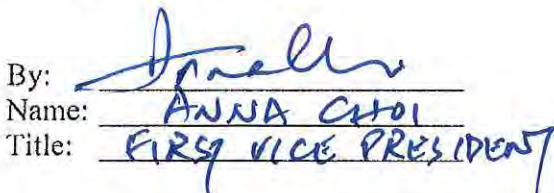 By:
Name: ANNA CHOI
Title: FIRST VICE PRESIDENT